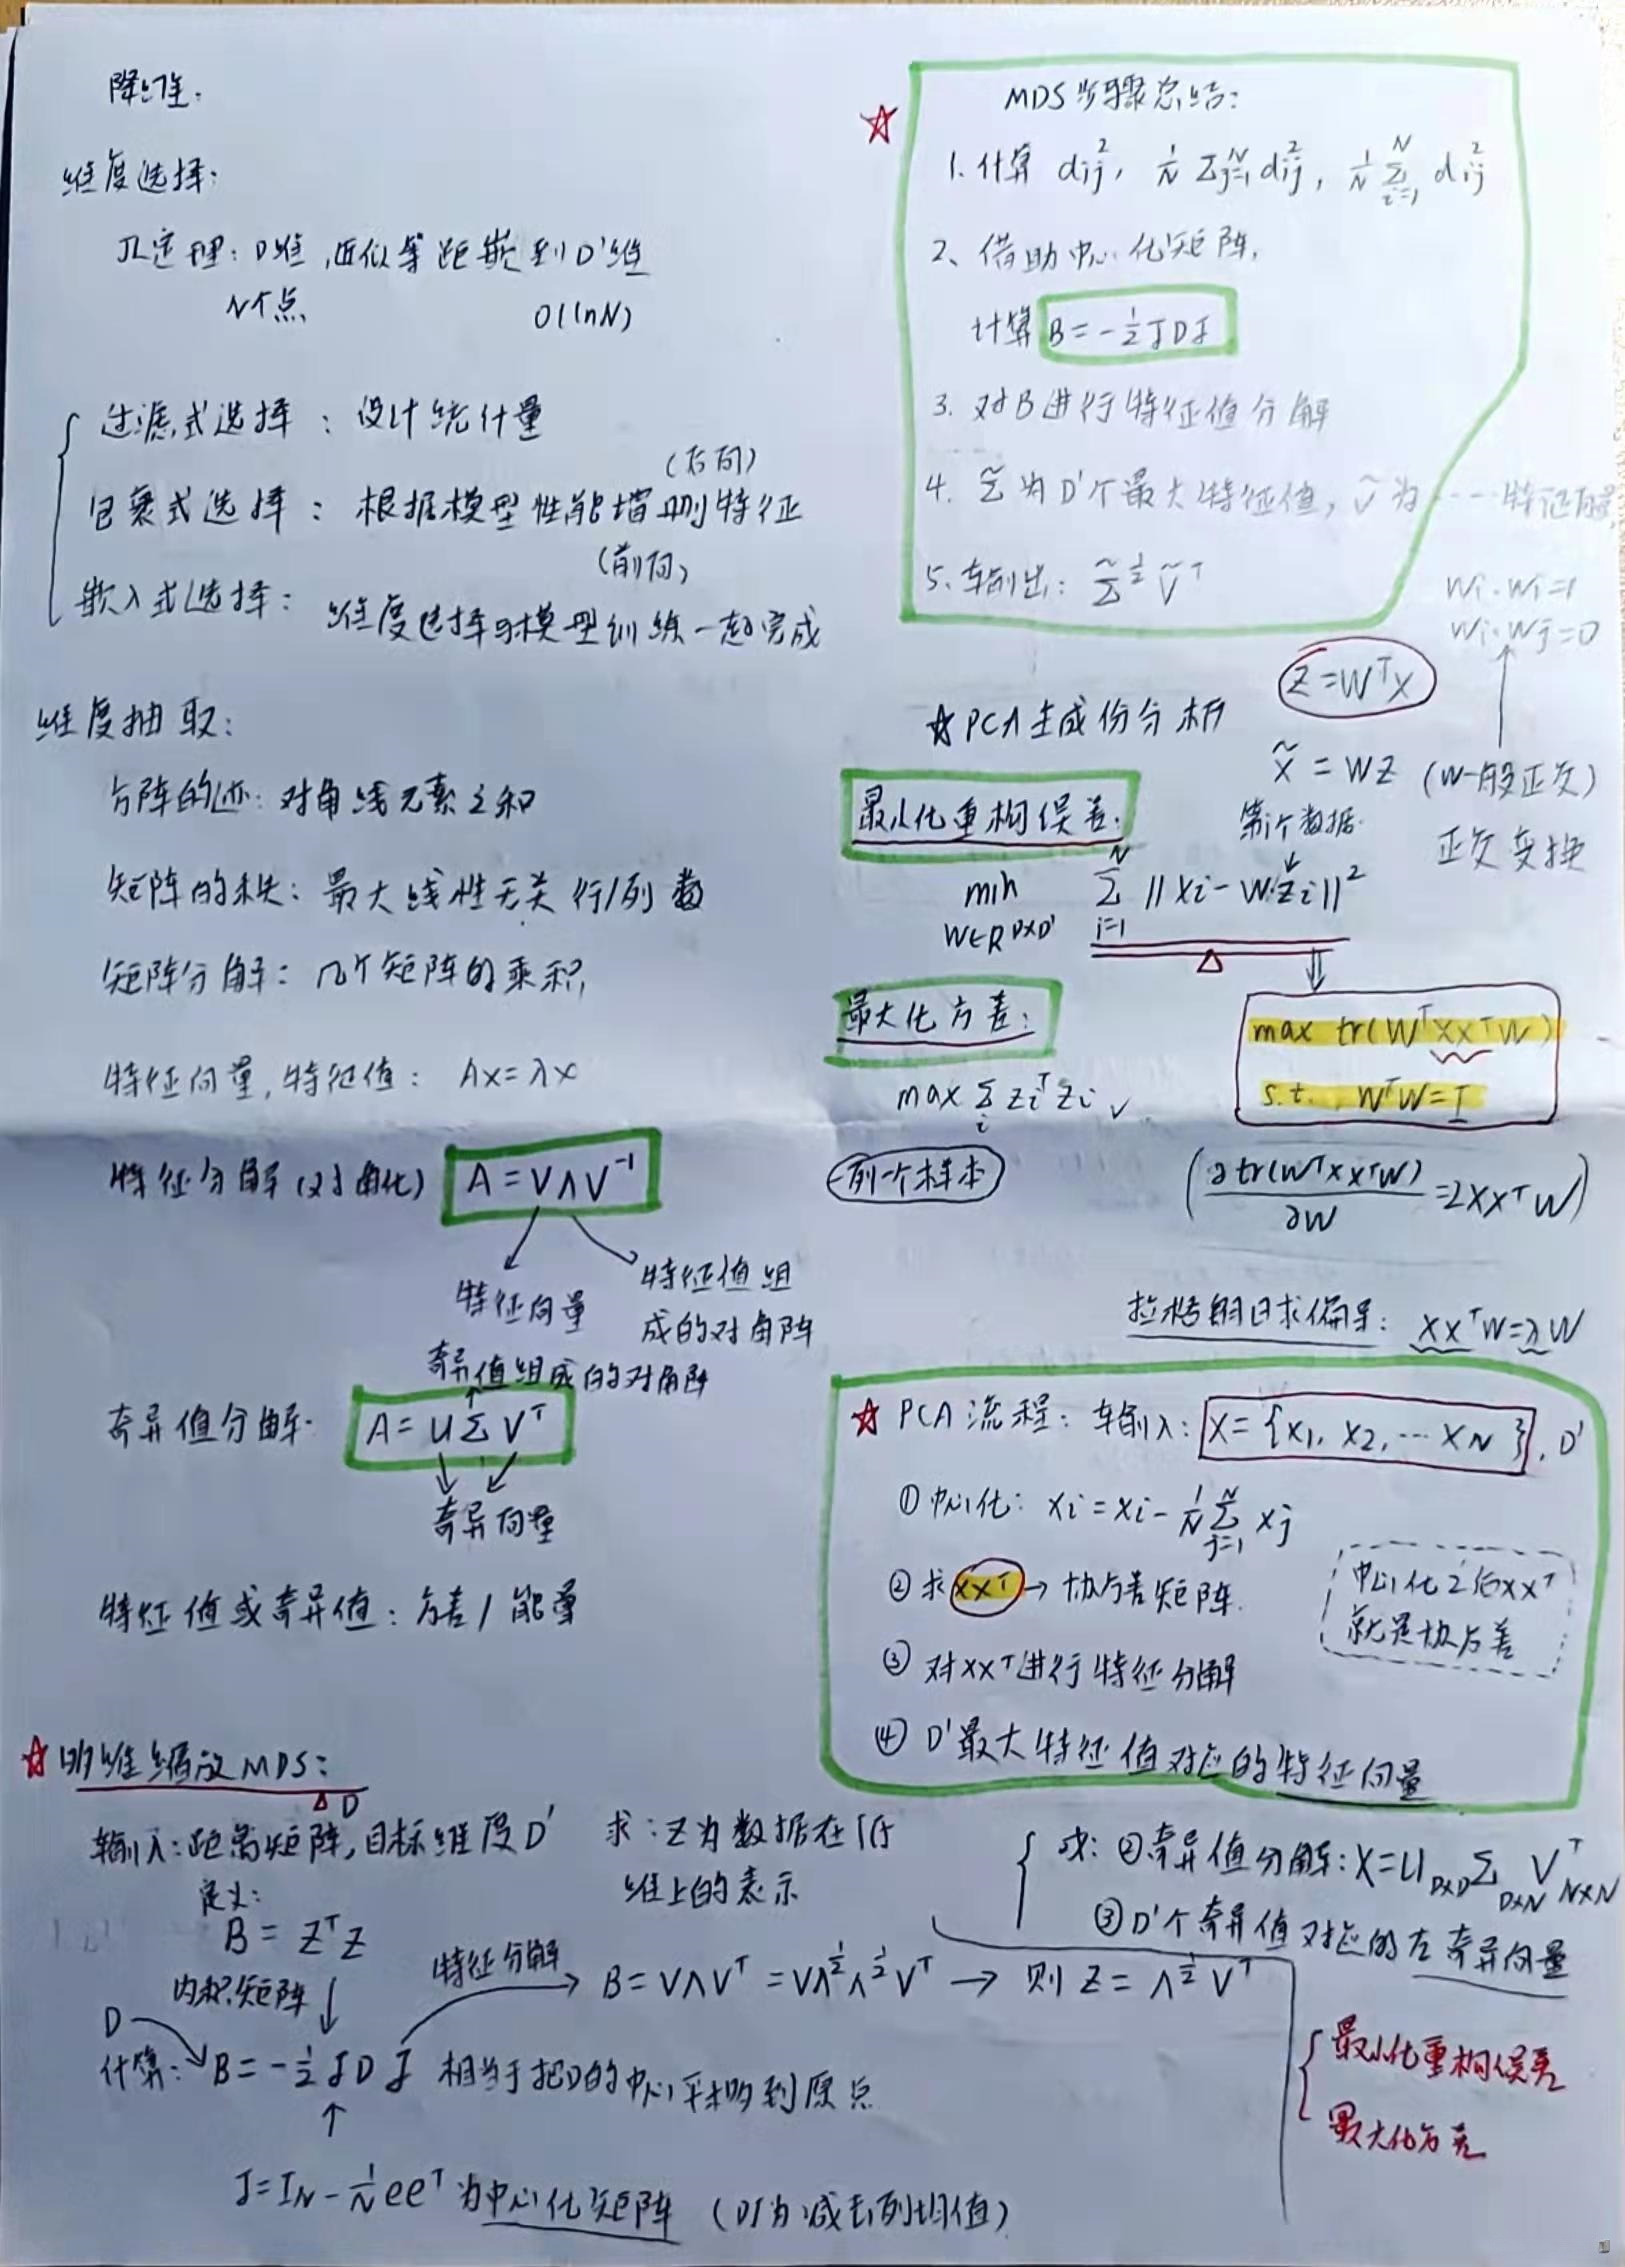 降维:
维度选择:
JL定理: D维,近似等距嵌到D'维
N个点 O(lnN)
过滤式选择 : 设计统计量
(后向)
包裹式选择 : 根据模型性能增删特征
(前向)
嵌入式选择: 维度选择与模型训练一起完成
维度抽取:
方阵的迹: 对角线元素之和
矩阵的秩: 最大线性无关行/列数
矩阵分解: 几个矩阵的乘积
特征向量,特征值: Ax=λx
特征分解(对角化) A=VΛV⁻¹
特征向量
特征值组
成的对角阵
奇异值组成的对角阵
奇异值分解: A=UΣVᵀ
奇异向量
特征值或奇异值: 方差/能量
☆ 多维缩放MDS:
D
输入:距离矩阵,目标维度D' 求:Z为数据在低
维上的表示
定义:
B = ZᵀZ
内积矩阵
特征分解
B=VΛVᵀ=VΛ^½Λ^½Vᵀ → 则 Z = Λ^½Vᵀ
D
计算: B=-½JDJ 相当于把D的中心平移到原点
J=I_N-1/N eeᵀ为中心化矩阵 (DJ为减去列均值)
☆ MDS步骤总结:
1.计算 dij², 1/N Σ_{j=1}^N dij², 1/N Σ_{i=1}^N dij²
2、借助中心化矩阵,
计算 B=-½JDJ
3. 对B进行特征值分解
4. Σ̃为D'个最大特征值, Ṽ为……特征向量
5.输出: Σ̃^½Ṽᵀ
Wi·Wi=1
Wi·Wj=0
Z=WᵀX
☆PCA 主成份分析
X̃=WZ (W一般正交)
正交变换
最小化重构误差:
第i个数据
min Σ_{i=1}^N ||Xi-W·Zi||²
W∈R^{D×D'}
最大化方差:
max tr(WᵀXXᵀW)
s.t. WᵀW=I
max Σ_i ZiᵀZi √
一列一个样本
(∂tr(WᵀXXᵀW)/∂W=2XXᵀW)
拉格朗日求偏导: XXᵀW=λW
☆ PCA流程: 输入: X={x₁, x₂, … x_N}, D'
① 中心化: xi=xi-1/N Σ_{j=1}^N xj
② 求XXᵀ→协方差矩阵.
中心化之后XXᵀ
就是协方差
③ 对XXᵀ进行特征分解
④ D'最大特征值对应的特征向量
或: ②奇异值分解: X=U_{D×D}Σ_{D×N}Vᵀ_{N×N}
③D'个奇异值对应的左奇异向量
最小化重构误差
最大化方差